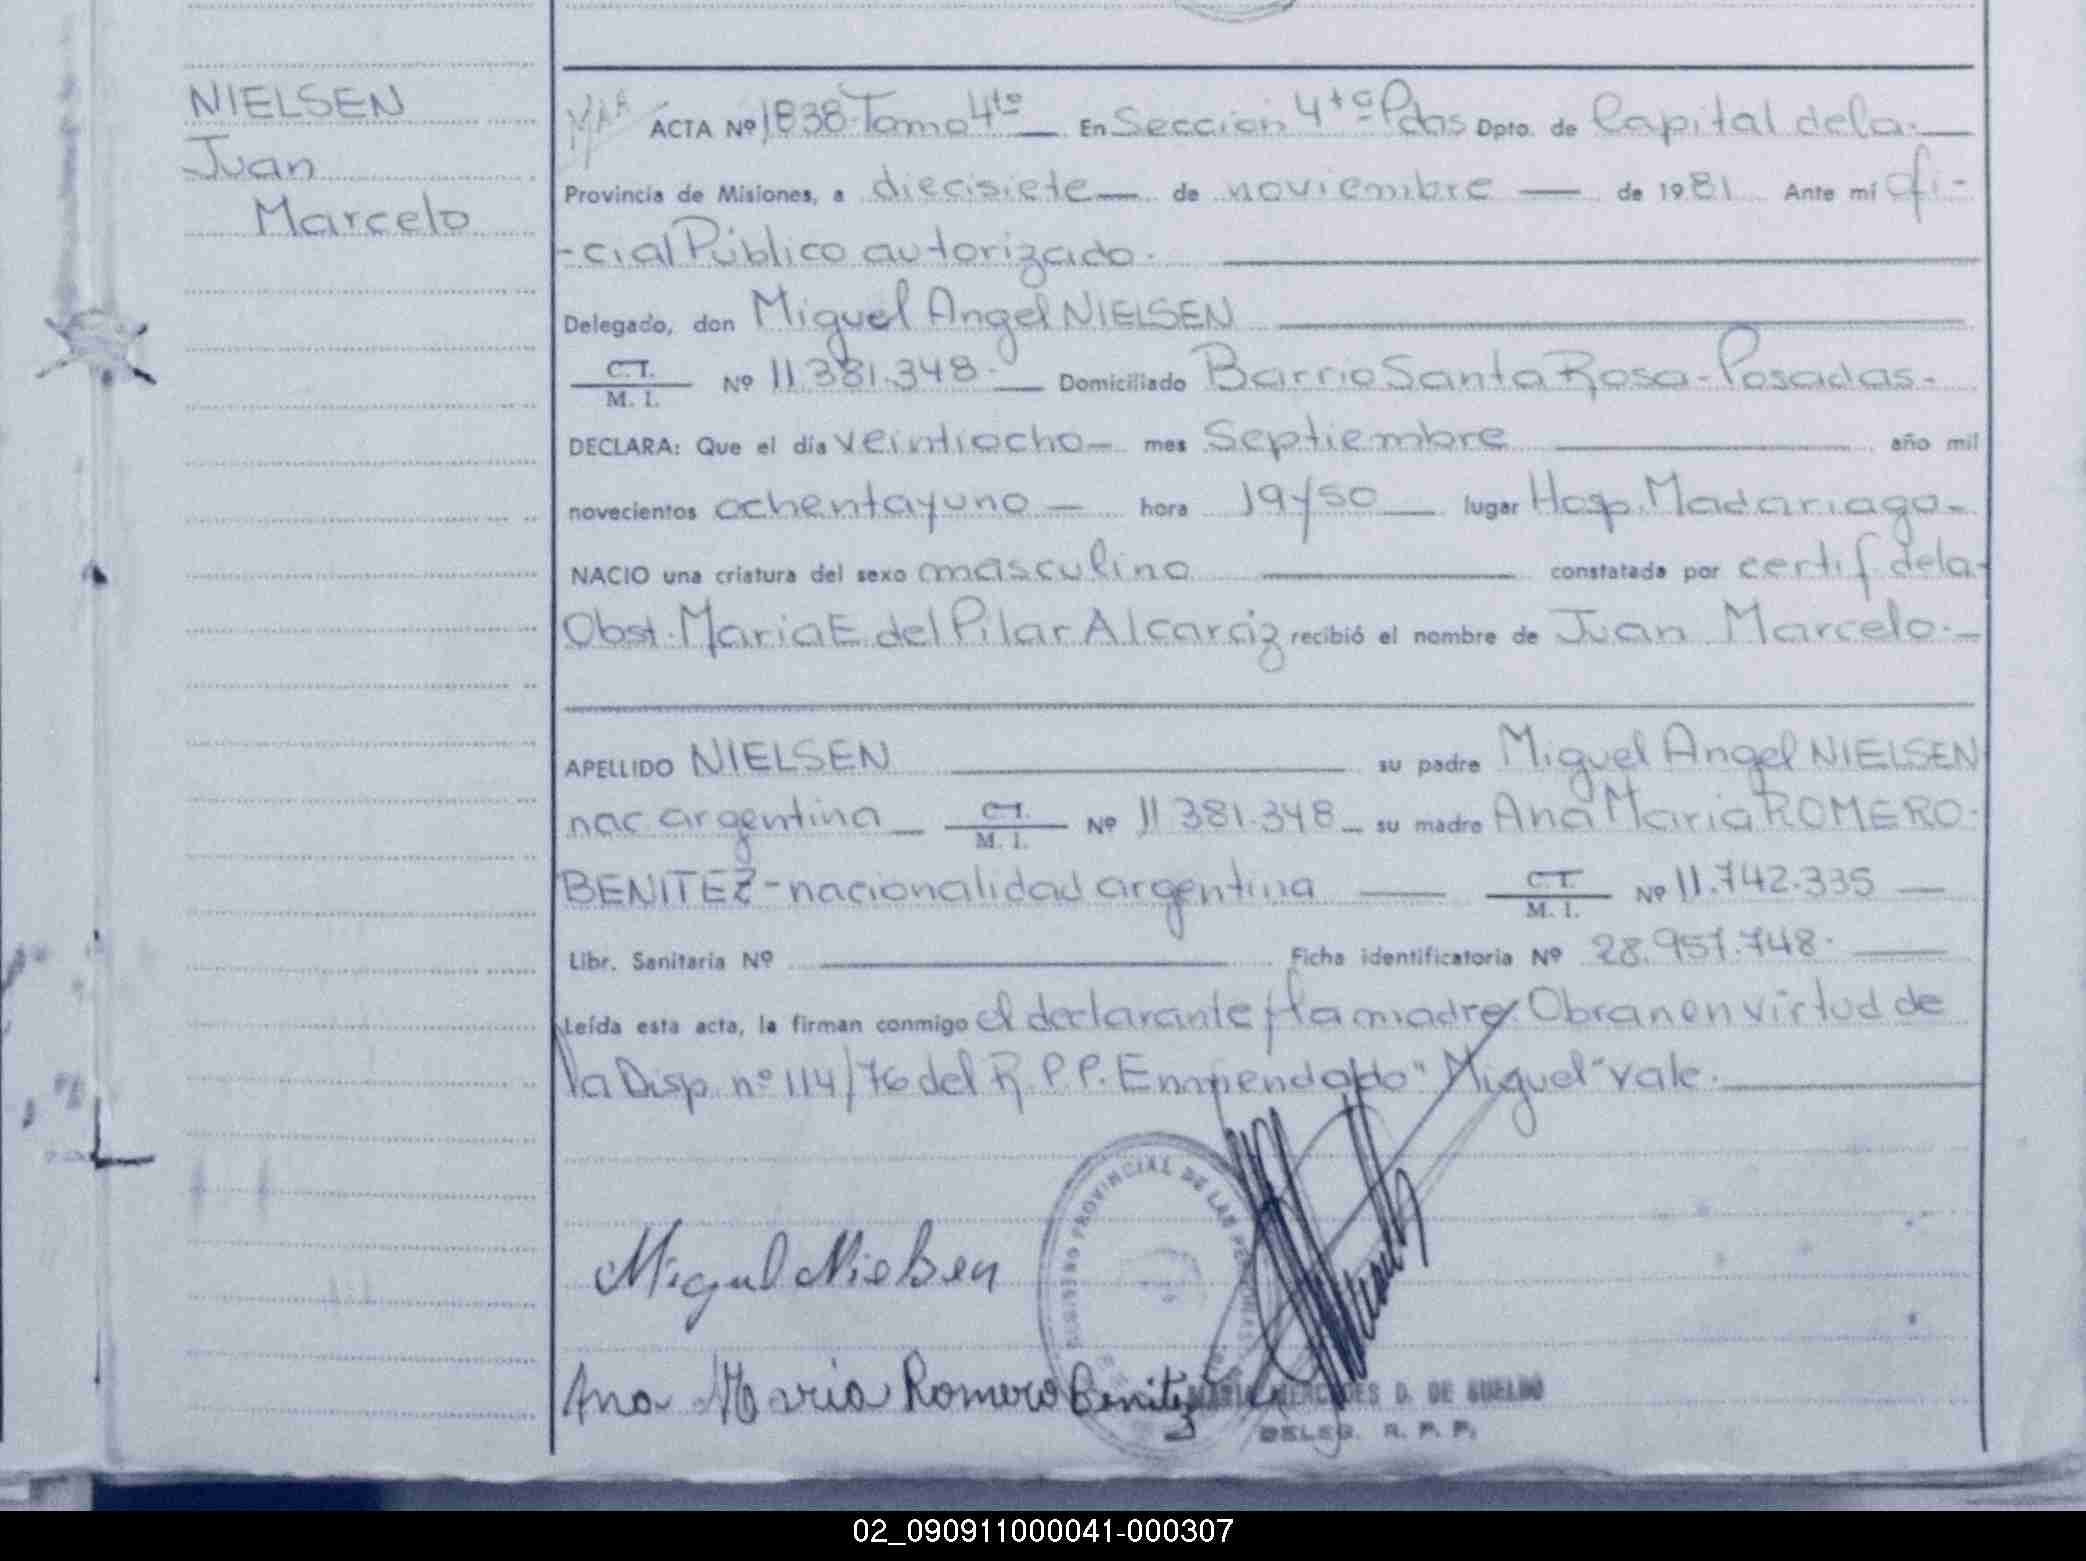 NIELSEN
Juan
Marcelo
ACTA Nº 1838 Tomo 4to En Sección 4ta Pdas Dpto. de Capital de la
Provincia de Misiones, a diecisiete de noviembre de 1981 Ante mí ofi-
-cial Público autorizado.
Delegado, don Miguel Angel NIELSEN
C.I.
M. I.
Nº 11.381.348. Domiciliado Barrio Santa Rosa - Posadas -
DECLARA: Que el día veintiocho mes Septiembre año mil
novecientos ochenta y uno hora 19/50 lugar Hosp. Madariaga -
NACIO una criatura del sexo masculino constatada por certif de la
Obst. Maria E. del Pilar Alcaráz recibió el nombre de Juan Marcelo.
APELLIDO NIELSEN su padre Miguel Angel NIELSEN
nac argentina C.I. M. I. Nº 11.381.348 su madre Ana Maria ROMERO
BENITEZ - nacionalidad argentina C.I. M. I. Nº 11.742.335
Libr. Sanitaria Nº Ficha identificatoria Nº 28.951.748.
Leída esta acta, la firman conmigo el declarante y la madre. Obran en virtud de
la Disp. nº 114/76 del R.P.P. Enmendado "Miguel" vale.
REGISTRO PROVINCIAL DE LAS PERSONAS
Miguel Nielsen
Ana Maria Romero Benitez
MARIA MERCEDES D. DE SUELDO
DELEG. R. P. P.
02_090911000041-000307